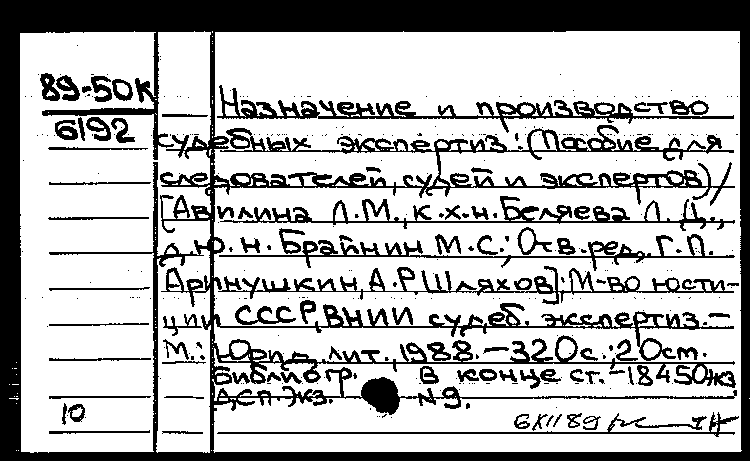 89-50К
6192
Назначение и производство
судебных экспертиз: (Пособие для
следователей, судей и экспертов)/
[Авилина Л.М., к.х.н. Беляева Л.Д.,
д.ю.н. Брайнин М.С.; Отв. ред. Г.П.
Аринушкин, А.Р. Шляхов]; М-во юсти-
ции СССР, ВНИИ судеб. экспертиз. –
М.: Юрид. лит., 1988. – 320 с.; 20 см.
Библиогр. в конце ст. – 18450 экз.
Дсп. Экз. N 9.
10 6XII89